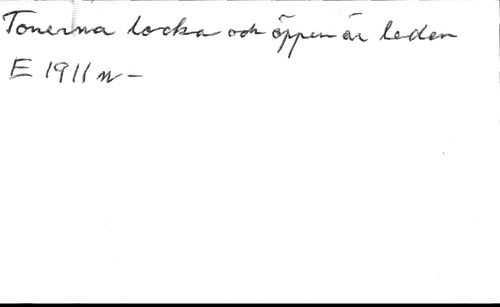 Tonerna locka och öppen är leden
E 1911 n -